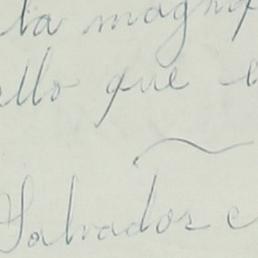 ta magn
ello que
Salvador